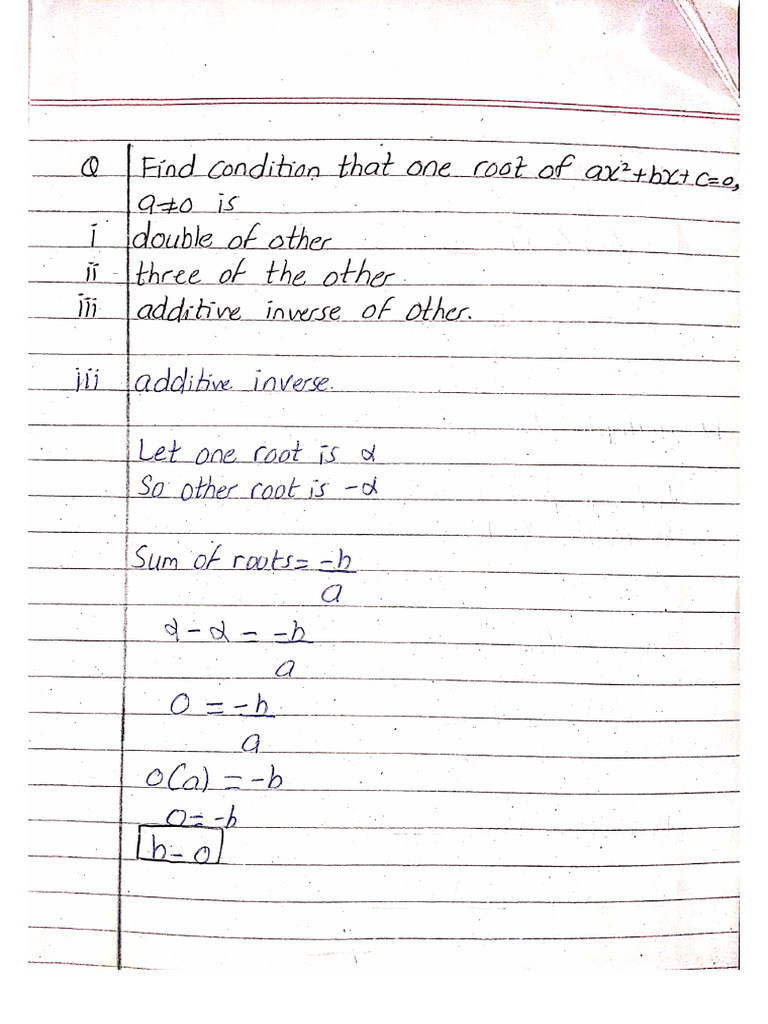 Q Find condition that one root of ax²+bx+c=0,
a≠0 is
i double of other
ii three of the other.
iii additive inverse of other.
iii additive inverse.
Let one root is α
So other root is -α
Sum of roots = -b/a
α - α = -b/a
0 = -b/a
0(a) = -b
0 = -b
b = 0